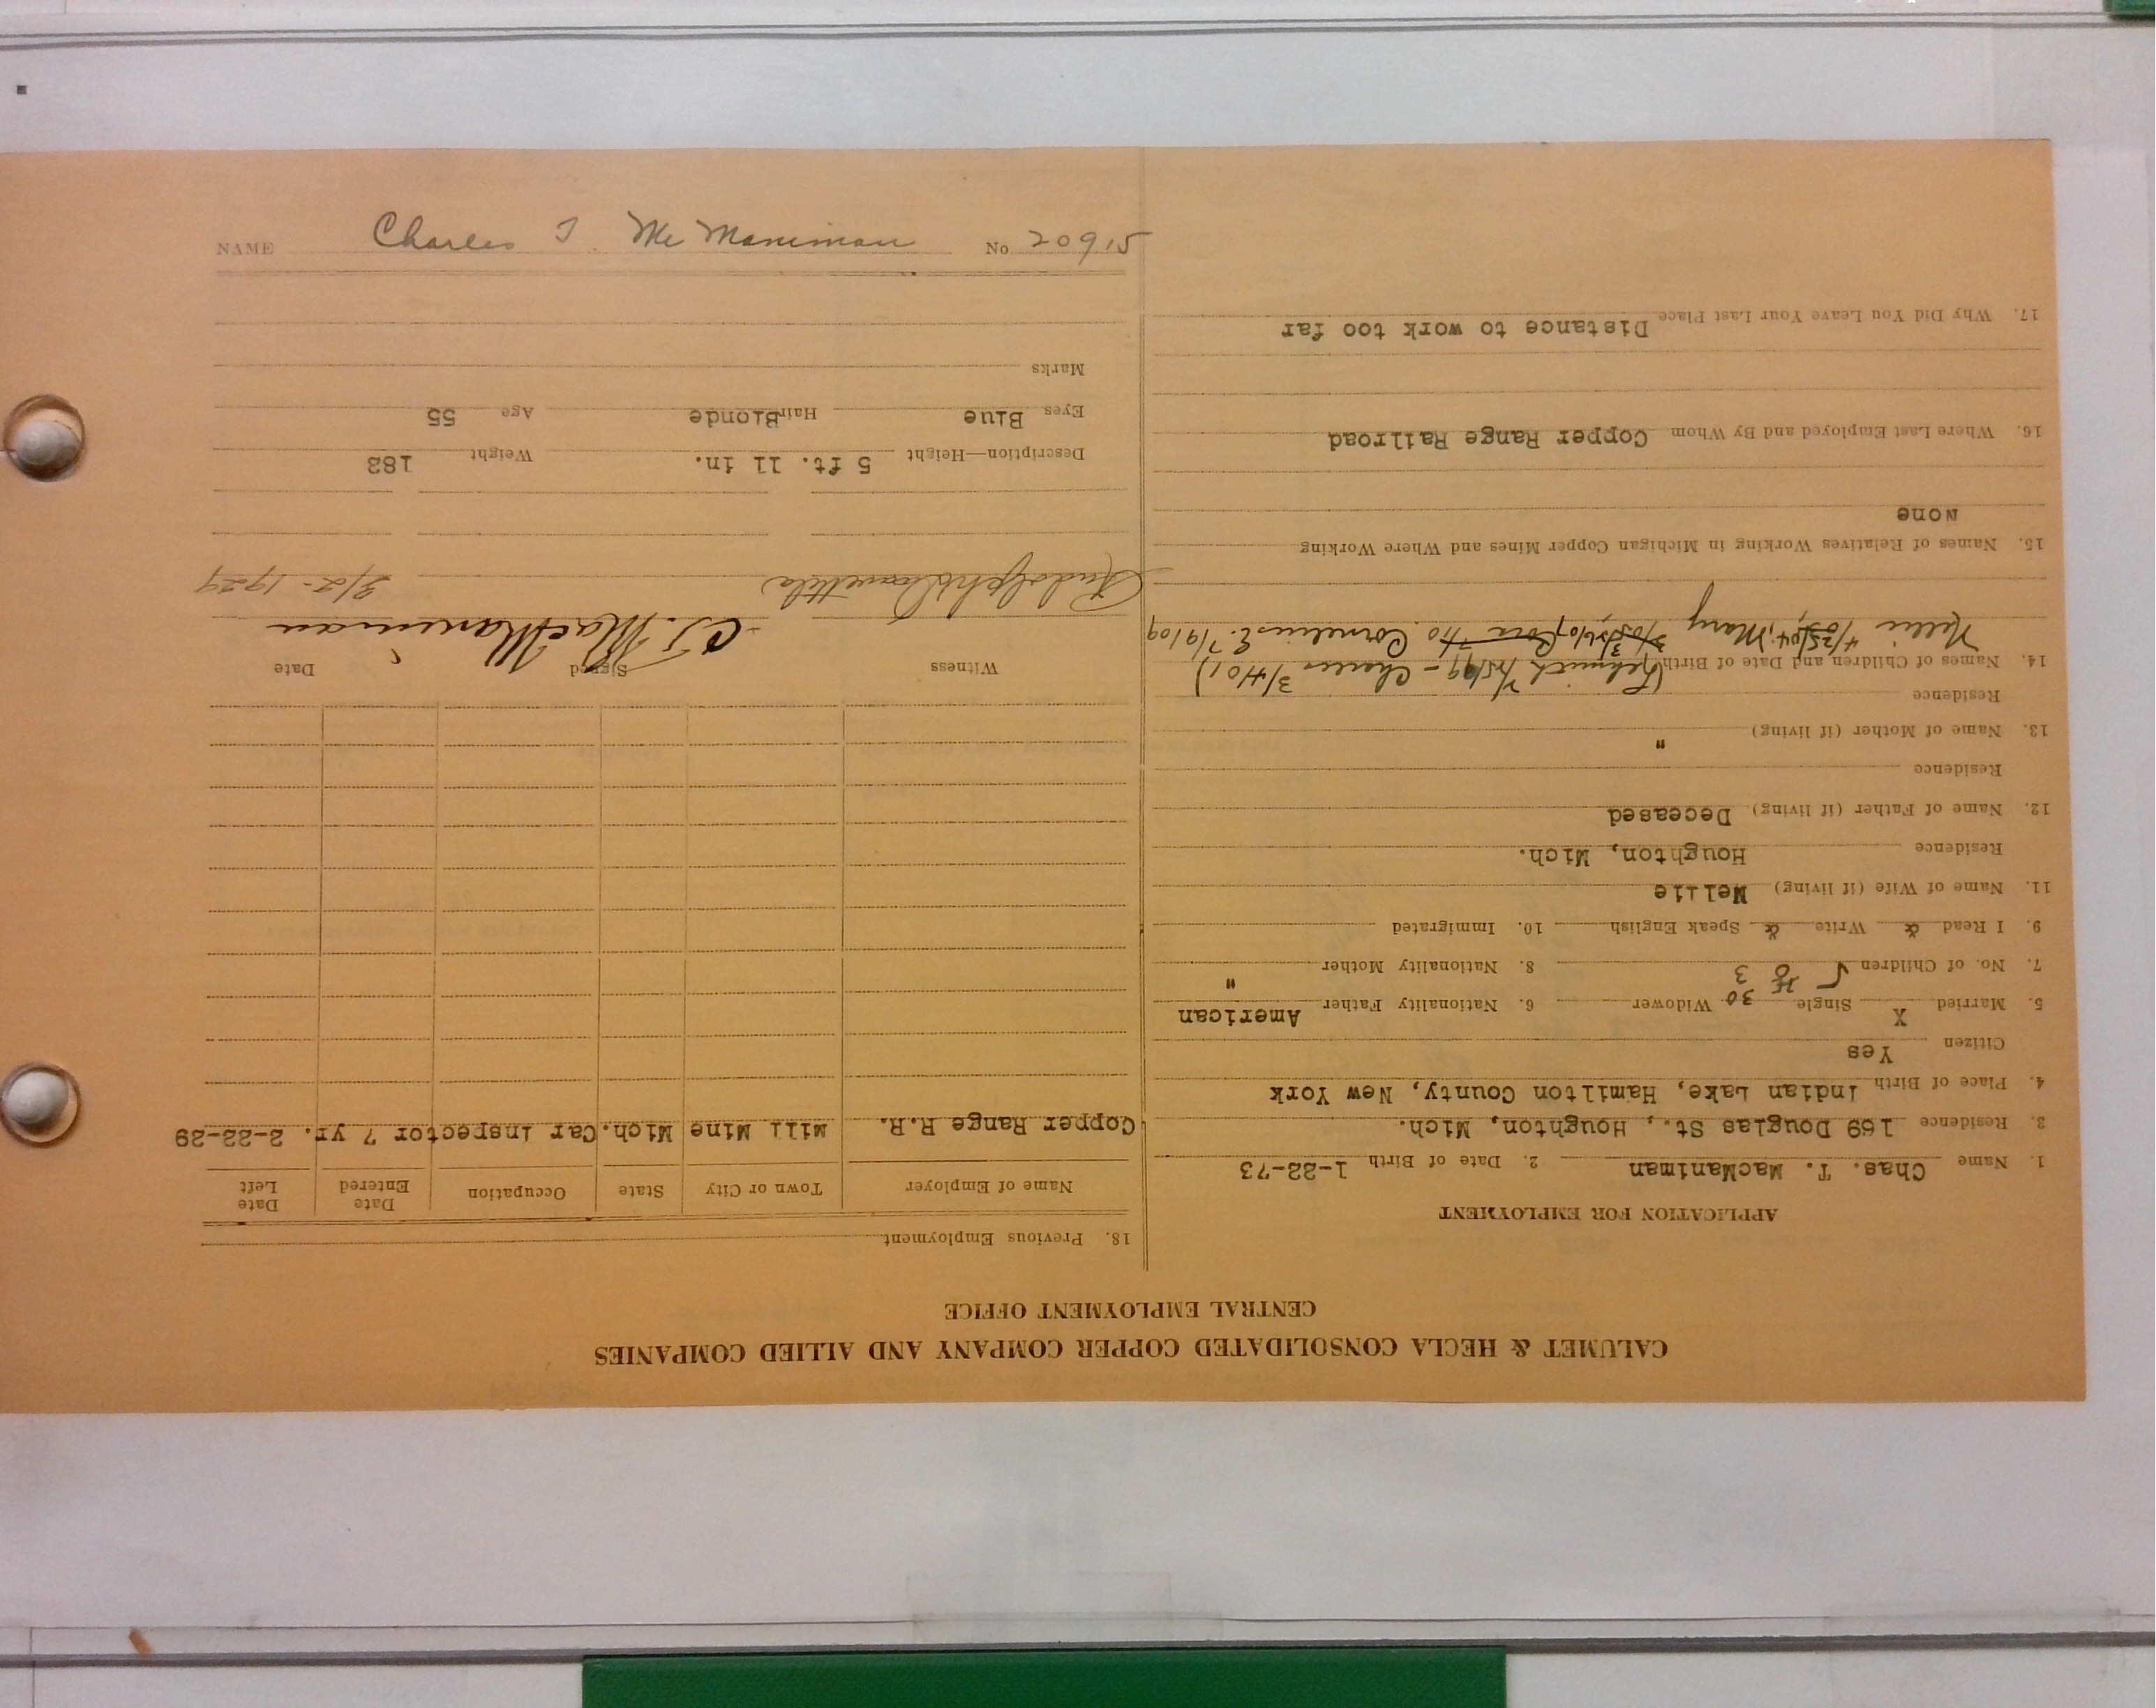 CALUMET & HECLA CONSOLIDATED COPPER COMPANY AND ALLIED COMPANIES
CENTRAL EMPLOYMENT OFFICE
APPLICATION FOR EMPLOYMENT
1. Name Chas. T. MacManiman 2. Date of Birth 1-22-73
3. Residence 169 Douglas St., Houghton, Mich.
4. Place of Birth Indian Lake, Hamilton County, New York
Citizen Yes
5. Married X Single 30 Widower 6. Nationality Father American
7. No. of Children 5 3 8. Nationality Mother "
9. I Read & Write & Speak English 10. Immigrated
11. Name of Wife (if living) Nellie
Residence Houghton, Mich.
12. Name of Father (if living) Deceased
Residence
13. Name of Mother (if living) "
Residence
14. Names of Children and Date of Birth - Charles 3/4/01)
Nellie 4/25/04, Mary Cornelius E. 7/9/09
15. Names of Relatives Working in Michigan Copper Mines and Where Working
None
16. Where Last Employed and By Whom Copper Range Railroad
17. Why Did You Leave Your Last Place Distance to work too far
18. Previous Employment
Name of Employer Town or City State Occupation Date Entered Date Left
Copper Range R.R. Mill Mine Mich. Car Inspector 7 yr. 2-22-29
Witness Signed Date
Rudolph C.T. MacManiman 3/2-1929
Description—Height 5 ft. 11 in. Weight 182
Eyes Blue Hair Blonde Age 55
Marks
NAME Charles T. McManiman No 20915